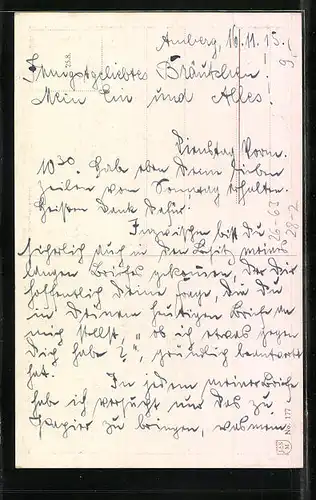 Amberg, 16.11.15.
Innigstgeliebtes Bräutchen!
Mein Ein und Alles!
Dienstag Vorm.
10³⁰. Hab eben Deine lieben
Zeilen vom Sonntag erhalten.
Heißen Dank dafür.
Inzwischen bist Du
sicherlich auch in den Besitz meines
langen Briefes gekommen, der Dir
hoffentlich Deine Frage, die Du
in Deinem heutigen Briefe an
mich stellst, „ob ich etwas gegen
Dich habe?", gründlich beantwortet
hat.
In jedem meiner Briefe
hab ich versucht nur das zu
Papier zu bringen, was mein
258.
26-63
28-2
No. 177